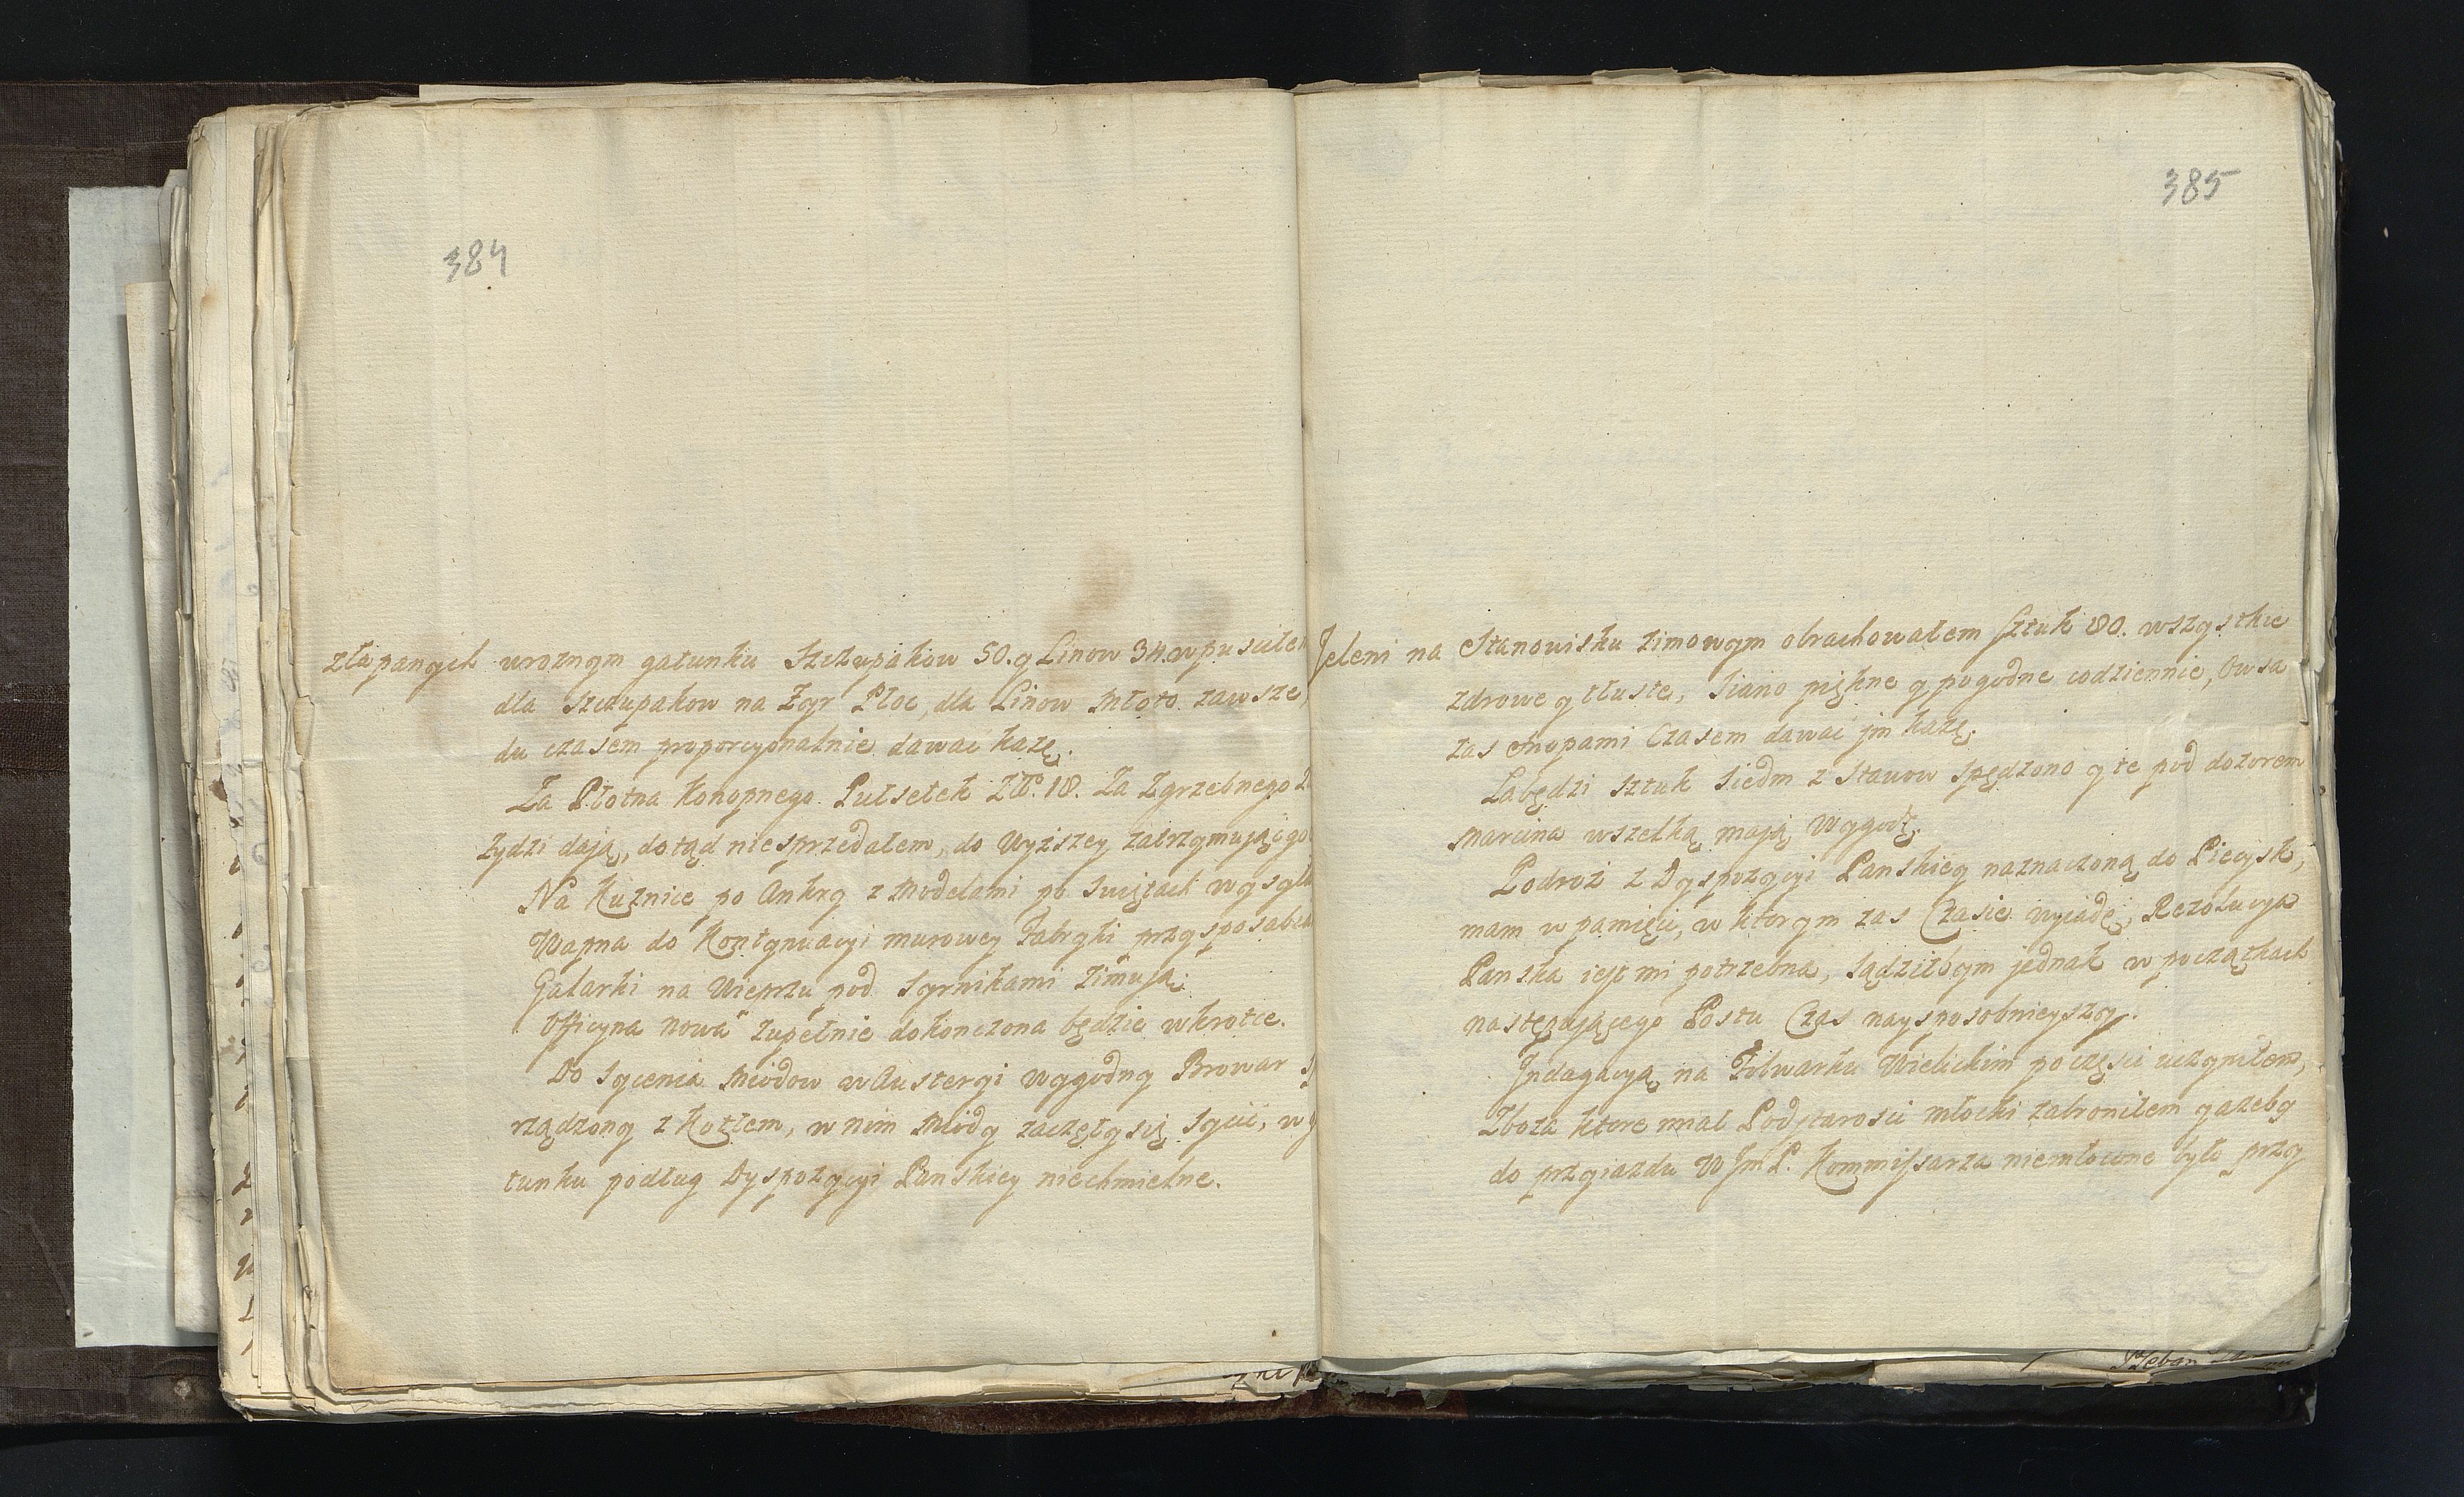 384
złapanych uroznym gatunku Szczupakow 50. y Linow 34. wpuscilem
dla szczupakow na Zyr Płoc, dla Linow Młoto zawsze,
du czasem proporcyonalnie dawać każę.
Za Płotna Konopnego Pułsetek Zł. 18. Za Zgrzebnego
Zydzi dają, dotąd niesprzedałem, do Wyższey zatrzymując go
Na Kuźnicę po Ankry z Modelami po Swiętach wysyła
Wapna do Kontynuacyi murowey Fabryki przysposabia
Galarki na Wieprzu pod Syrnikami zimują.
Officyna nowa zupełnie dokonczona będzie wkrotce.
Do Sycenia Miodow w Austeryi Wygodny Browar
rządzony z Kotłem, w nim Miody zaczęły się sycić, w
tunku podług Dyspozycyi Panskiey niechmielne.
385
Jeleni na Stanowisku zimowym obrachowałem Sztuk 80. wszystkie
zdrowe y tłuste, Siano piękne y pogodne codziennie, Owsa
zas Snopami Czasem dawać jm każę.
Łabędzi sztuk Siedm z Stawow Spędzono y te pod dozorem
Marcina wszelką mają Wygodę.
Podroż z Dyspozycyi Panskiey naznaczoną do Piecysk,
mam w pamięci, w ktorym zas Czasie wyiadę, Rezolucya
Panska iest mi potrzebna, Sądziłbym jednak w początkach
następującego Postu Czas nayposobnieyszy.
Jndagacyą na Folwarku Wielickim poczęsci uczyniłem,
Zboża ktore miał Podstarosci młocki zabroniłem y ażeby
do przyiazdu W Jm P. Kommissarza niemłocone było przy